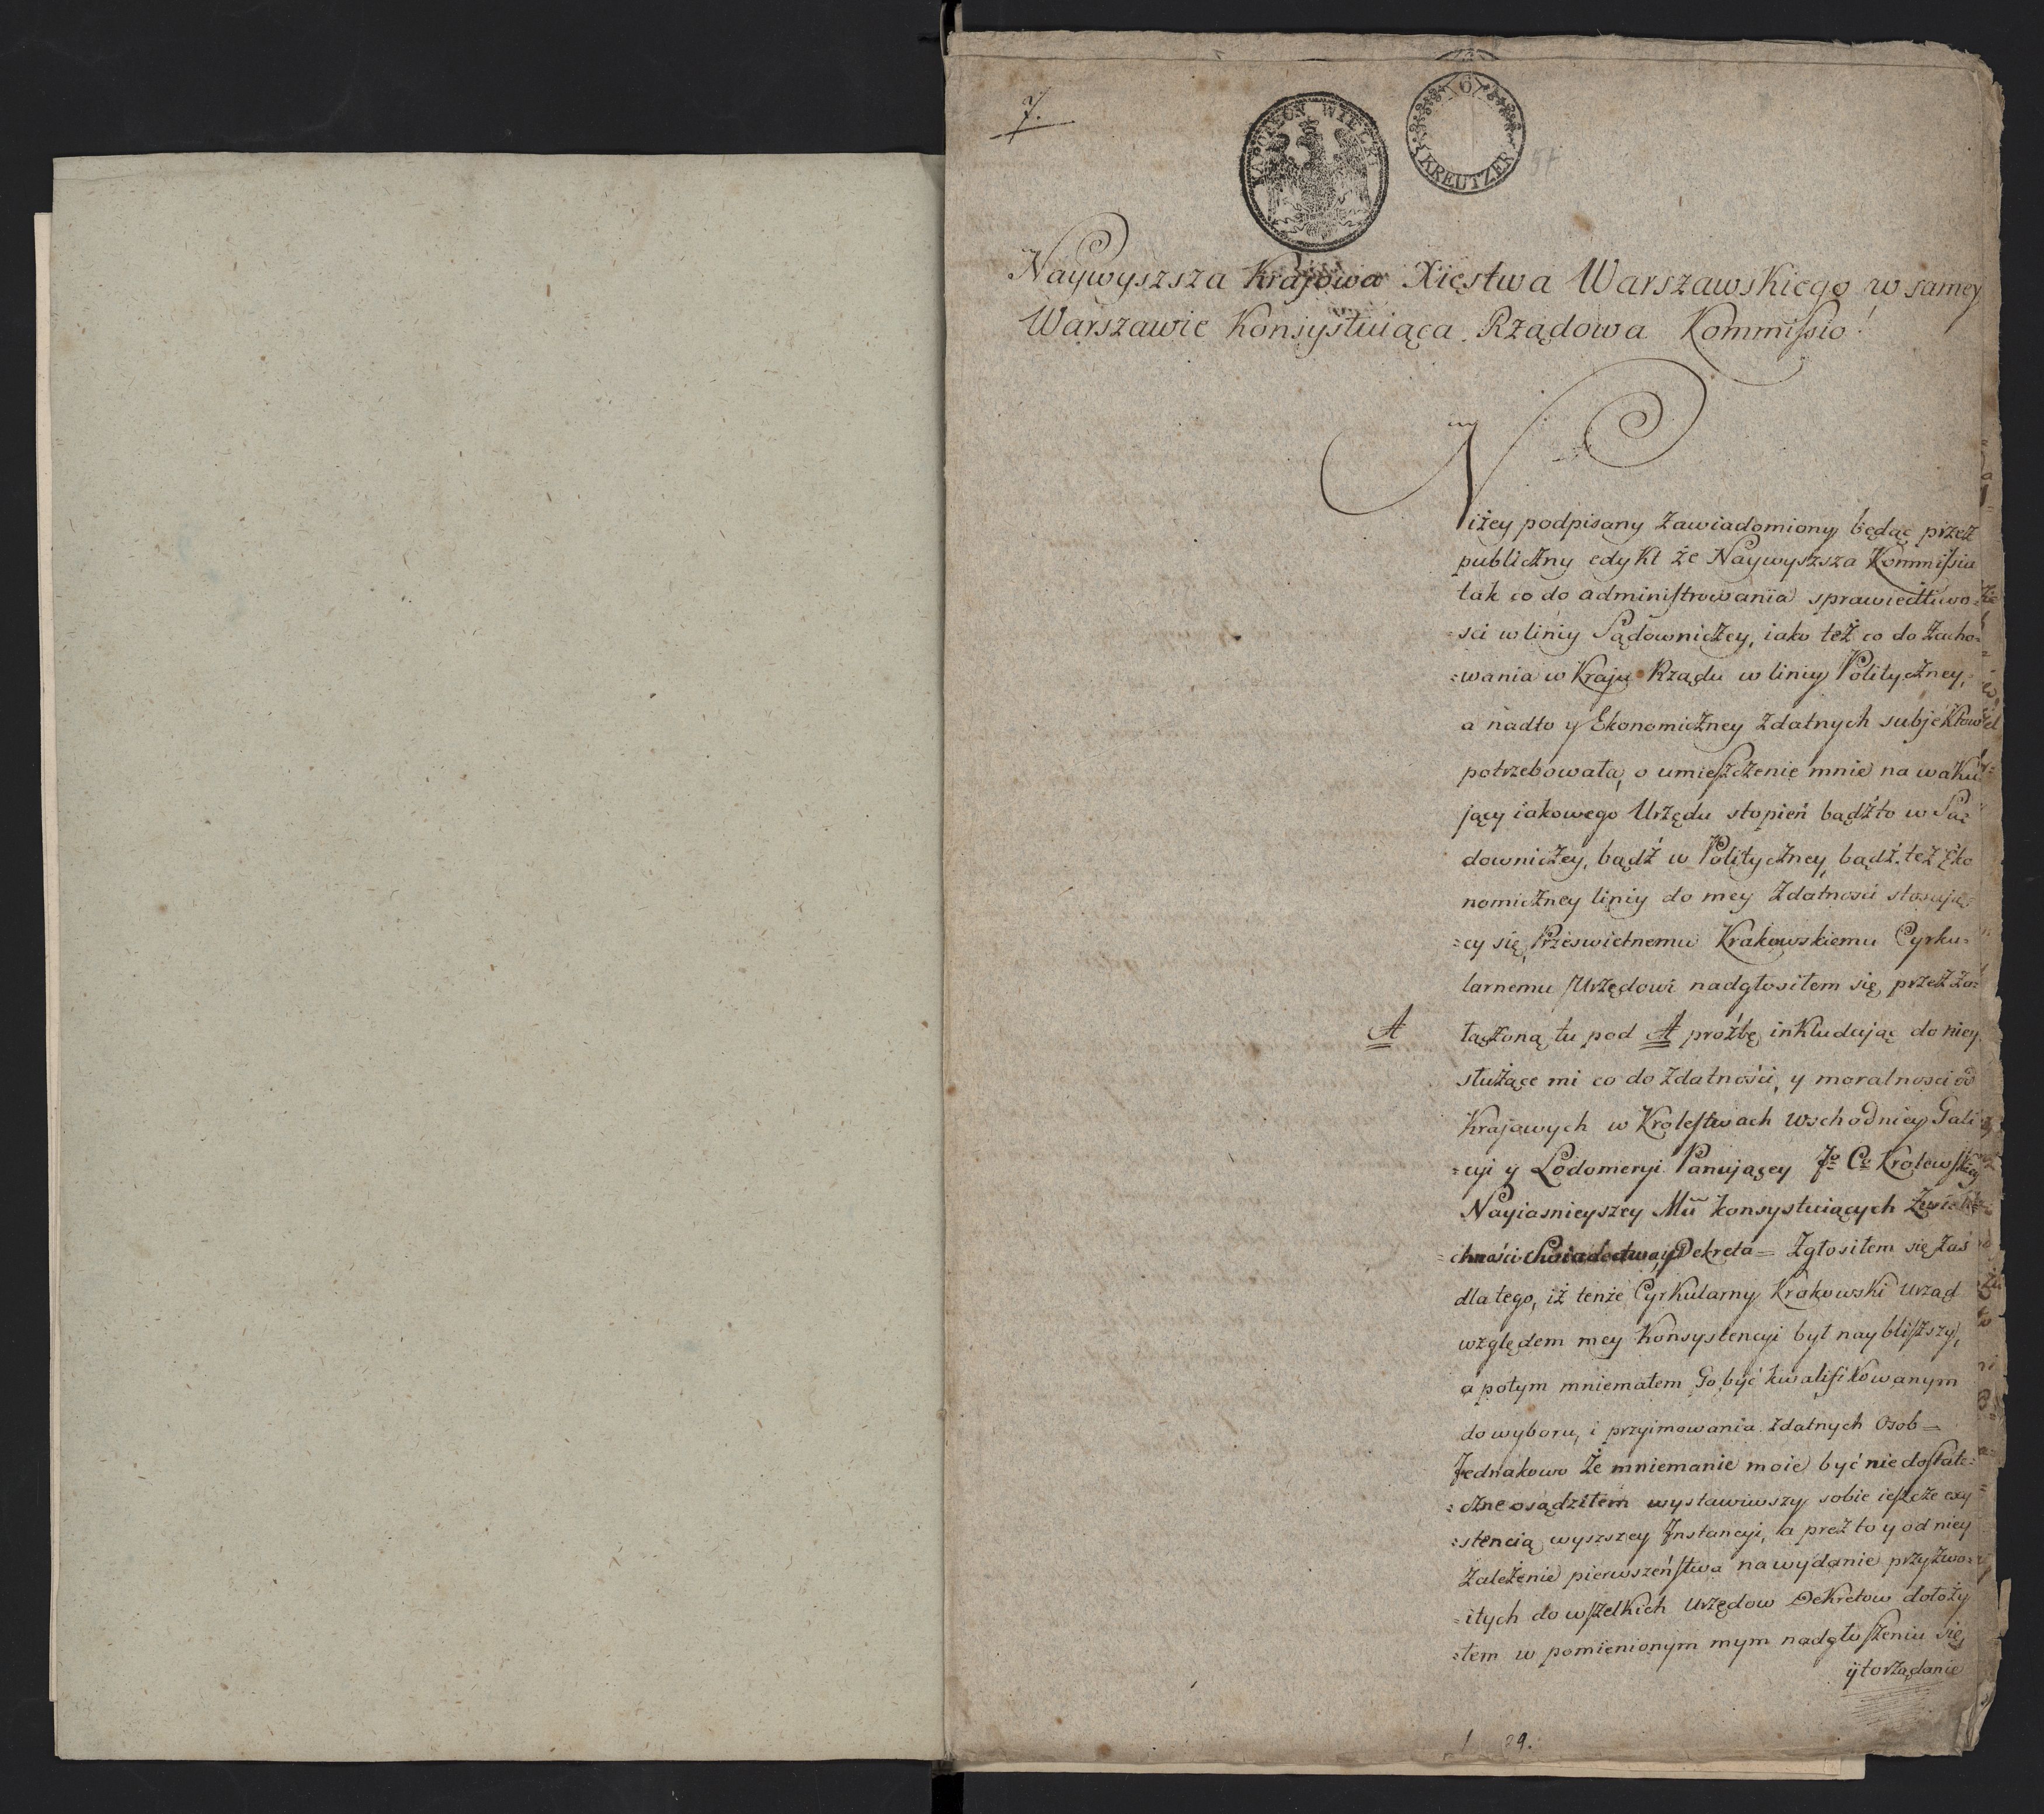 7.
NAPOLEON WIELKI
6
KREUTZER
57
Naywyszsza Krajowa Xięstwa Warszawskiego w samey
Warszawie Konsystuiąca Rządowa Kommissio!
Niżey podpisany zawiadomiony będąc przez
publiczny edykt że Naywyszsza Kommissia
tak co do administrowania sprawiedliwo
=sci w liniy Sądowniczey, iako też co do zacho=
=wania w Kraju Rządu w liniy Polityczney,
a nadto y Ekonomiczney zdatnych subjektow
potrzebowała, o umieszczenie mnie na waku
jący iakowego Urzędu stopień bądźto w Są
downiczey, bądź w Polityczney, bądź też Eko
nomiczney liniy do mey zdatnosci stosują=
=cy się, Przeswietnemu Krakowskiemu Cyrku=
larnemu Urzędowi nadgłosiłem się, przez za=
A łączoną tu pod A proźbę inkludując do niey
służące mi co do zdatności, y moralnosci od
Krajowych w Krolestwach Wschodniey Gali
=cyi y Lodomeryi Panującey Jo Co Krolewskiey
Nayiasnieyszey Mci konsystuiących Zwierz
=chności Swiadectwa, y Dekreta = Zgłosiłem się zaś
dla tego, iż tenże Cyrkularny Krakowski Urząd
względem mey Konsystencyi był naybliższy,
a potym mniemałem Go być kwalifikowanym
do wyboru, i przyimowania zdatnych Osob =
Jednakowo że mniemanie moie być niedostate=
=czne osądziłem wystawiwszy sobie ieszcze exy
=stencią wyszszey Instancyi, a prez to y od niey
Zależenie pierwszeństwa na wydanie przyzwo=
=itych do wszelkich Urzędow Dekretow dołoży
=łem w pomienionym mym nadgłoszeniu się
y to rządanie
29.